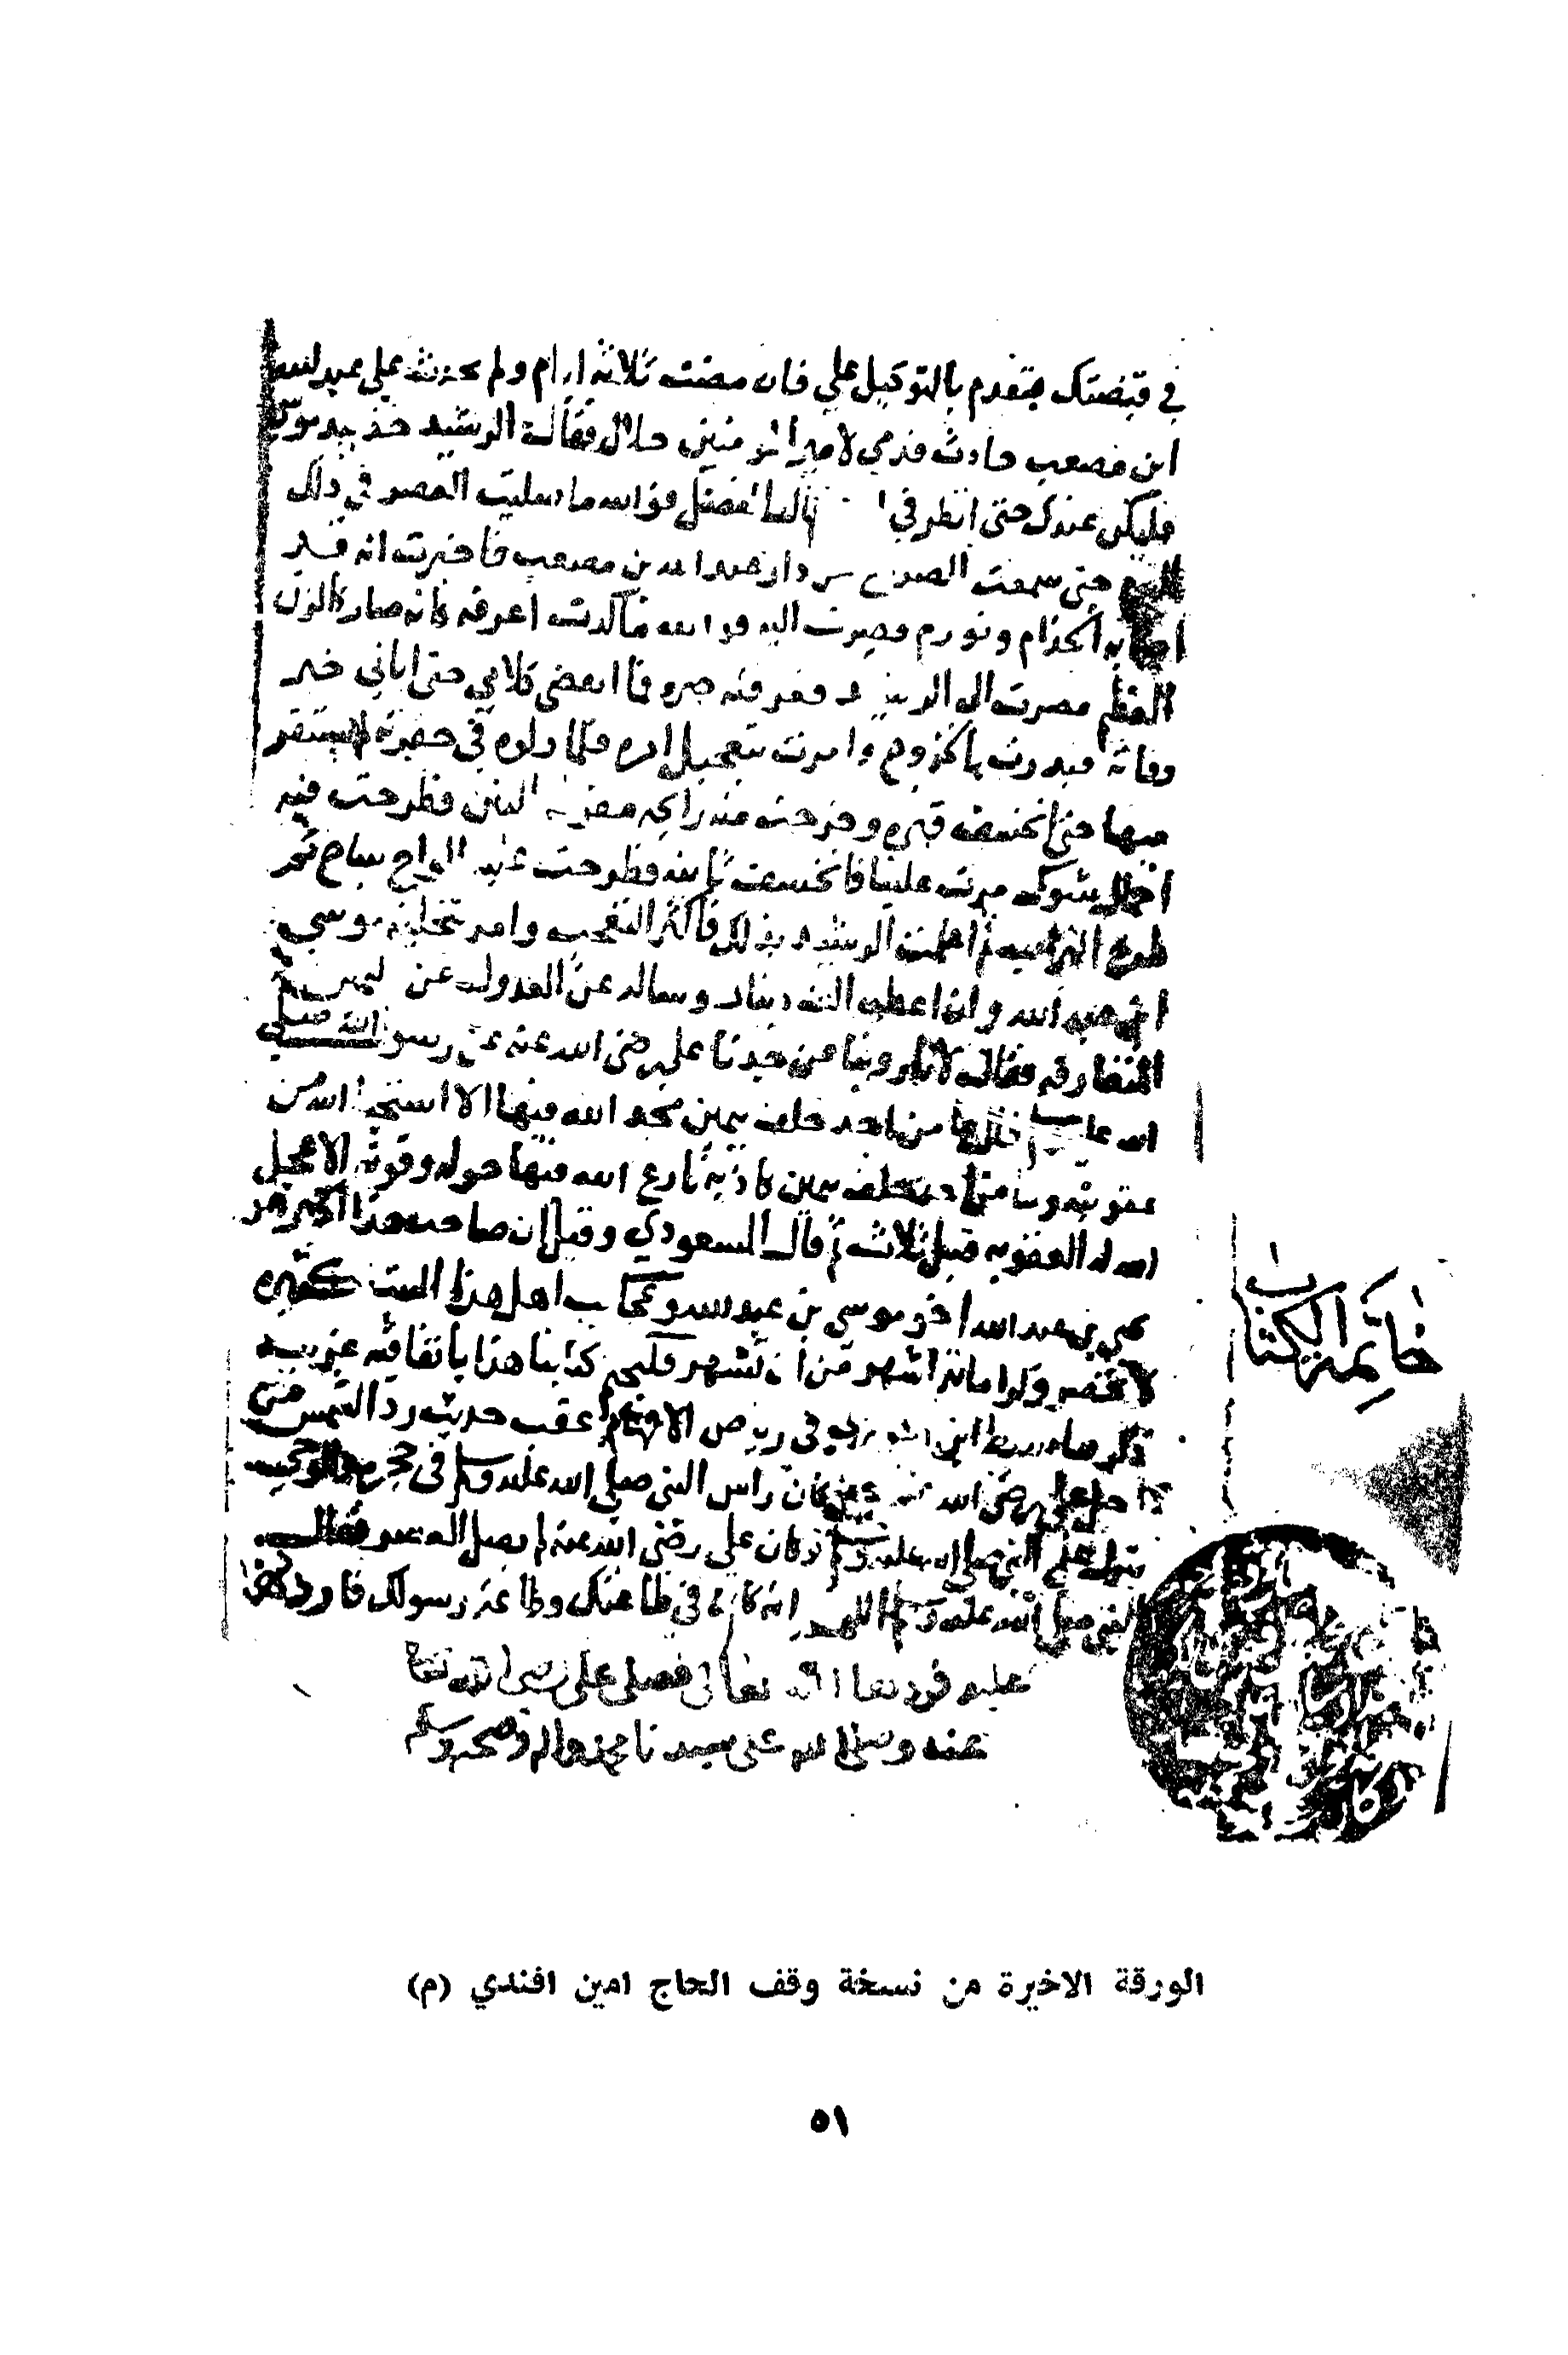 في قبضتك فتقدم بالتوكيل علي فان مضت ثلاثة ايام ولم يحدث علي عبد الله
ابن مصعب حادث فدمي لامير المؤمنين حلال فقال الرشيد خذ بيد موسى
فليكن عندك حتى انظر في قال الفضل فوالله ما صليت العصر في ذلك
حتى سمعت الصراخ من دار عبد الله بن مصعب فاخبرت انه قد
اصابه الجذام وتورم فصرت اليه فوالله ما كدت اعرفه كانه صار كالزق
العظيم فصرت الى الرشيد فعرفته خبره فما انقضى كلامي حتى اتاني خبر
وفاته فبدرت بالخروج وامرت بتعجيل امره فلما دلوه في حفرته لم يستقر
فيها حتى انخسف قبره وخرجت منه رائحة مفرطة النتن فطرحت فيه
احمال شوك مرت علينا فانخسف ثانية فطرحت عليه الواح ساج
ثم اعلمت الرشيد بذلك فاكثر التعجب وامر بتخلية موسى
ابن عبد الله وان اعطيه الف دينار وساله عن العدول عن اليمين
المتعارفة فقال لانا روينا عن جدنا علي رضي الله عنه عن رسول الله صلى
الله عليه من احد حلف بيمين مجد الله فيها الا استحيا الله من
عقوبته وما من احد حلف بيمين كاذبة نازع الله فيها حوله وقوته الا عجل
الله له العقوبة قبل ثلاث ثم قال المسعودي وقيل ان صاحب هذا الخبر هو
يحيى بن عبد الله اخو موسى بن عبد الله وعجايب اهل هذا البيت كثيرة
لا تحصر وكراماتهم اشهر من ان تشهر فليختم كتابنا هذا باتفاقية غريبة
ذكرها سبط ابن في رياض الافهام عقب حديث رد الشمس حتى
صلى علي رضي الله عنه حين كان راس النبي صلى الله عليه وسلم في حجره والوحي
ينزل على النبي صلى الله عليه وسلم وكان علي رضي الله عنه لم يصل العصر فقال
النبي صلى الله عليه وسلم اللهم انه كان في طاعتك وطاعة رسولك فاردد
عليه فردها الله تعالى فصلى علي رضي الله تعالى
عنه وصلى الله على سيدنا محمد واله وصحبه وسلم
خاتمة الكتاب
الورقة الاخيرة من نسخة وقف الحاج امين افندي (م)
٥١